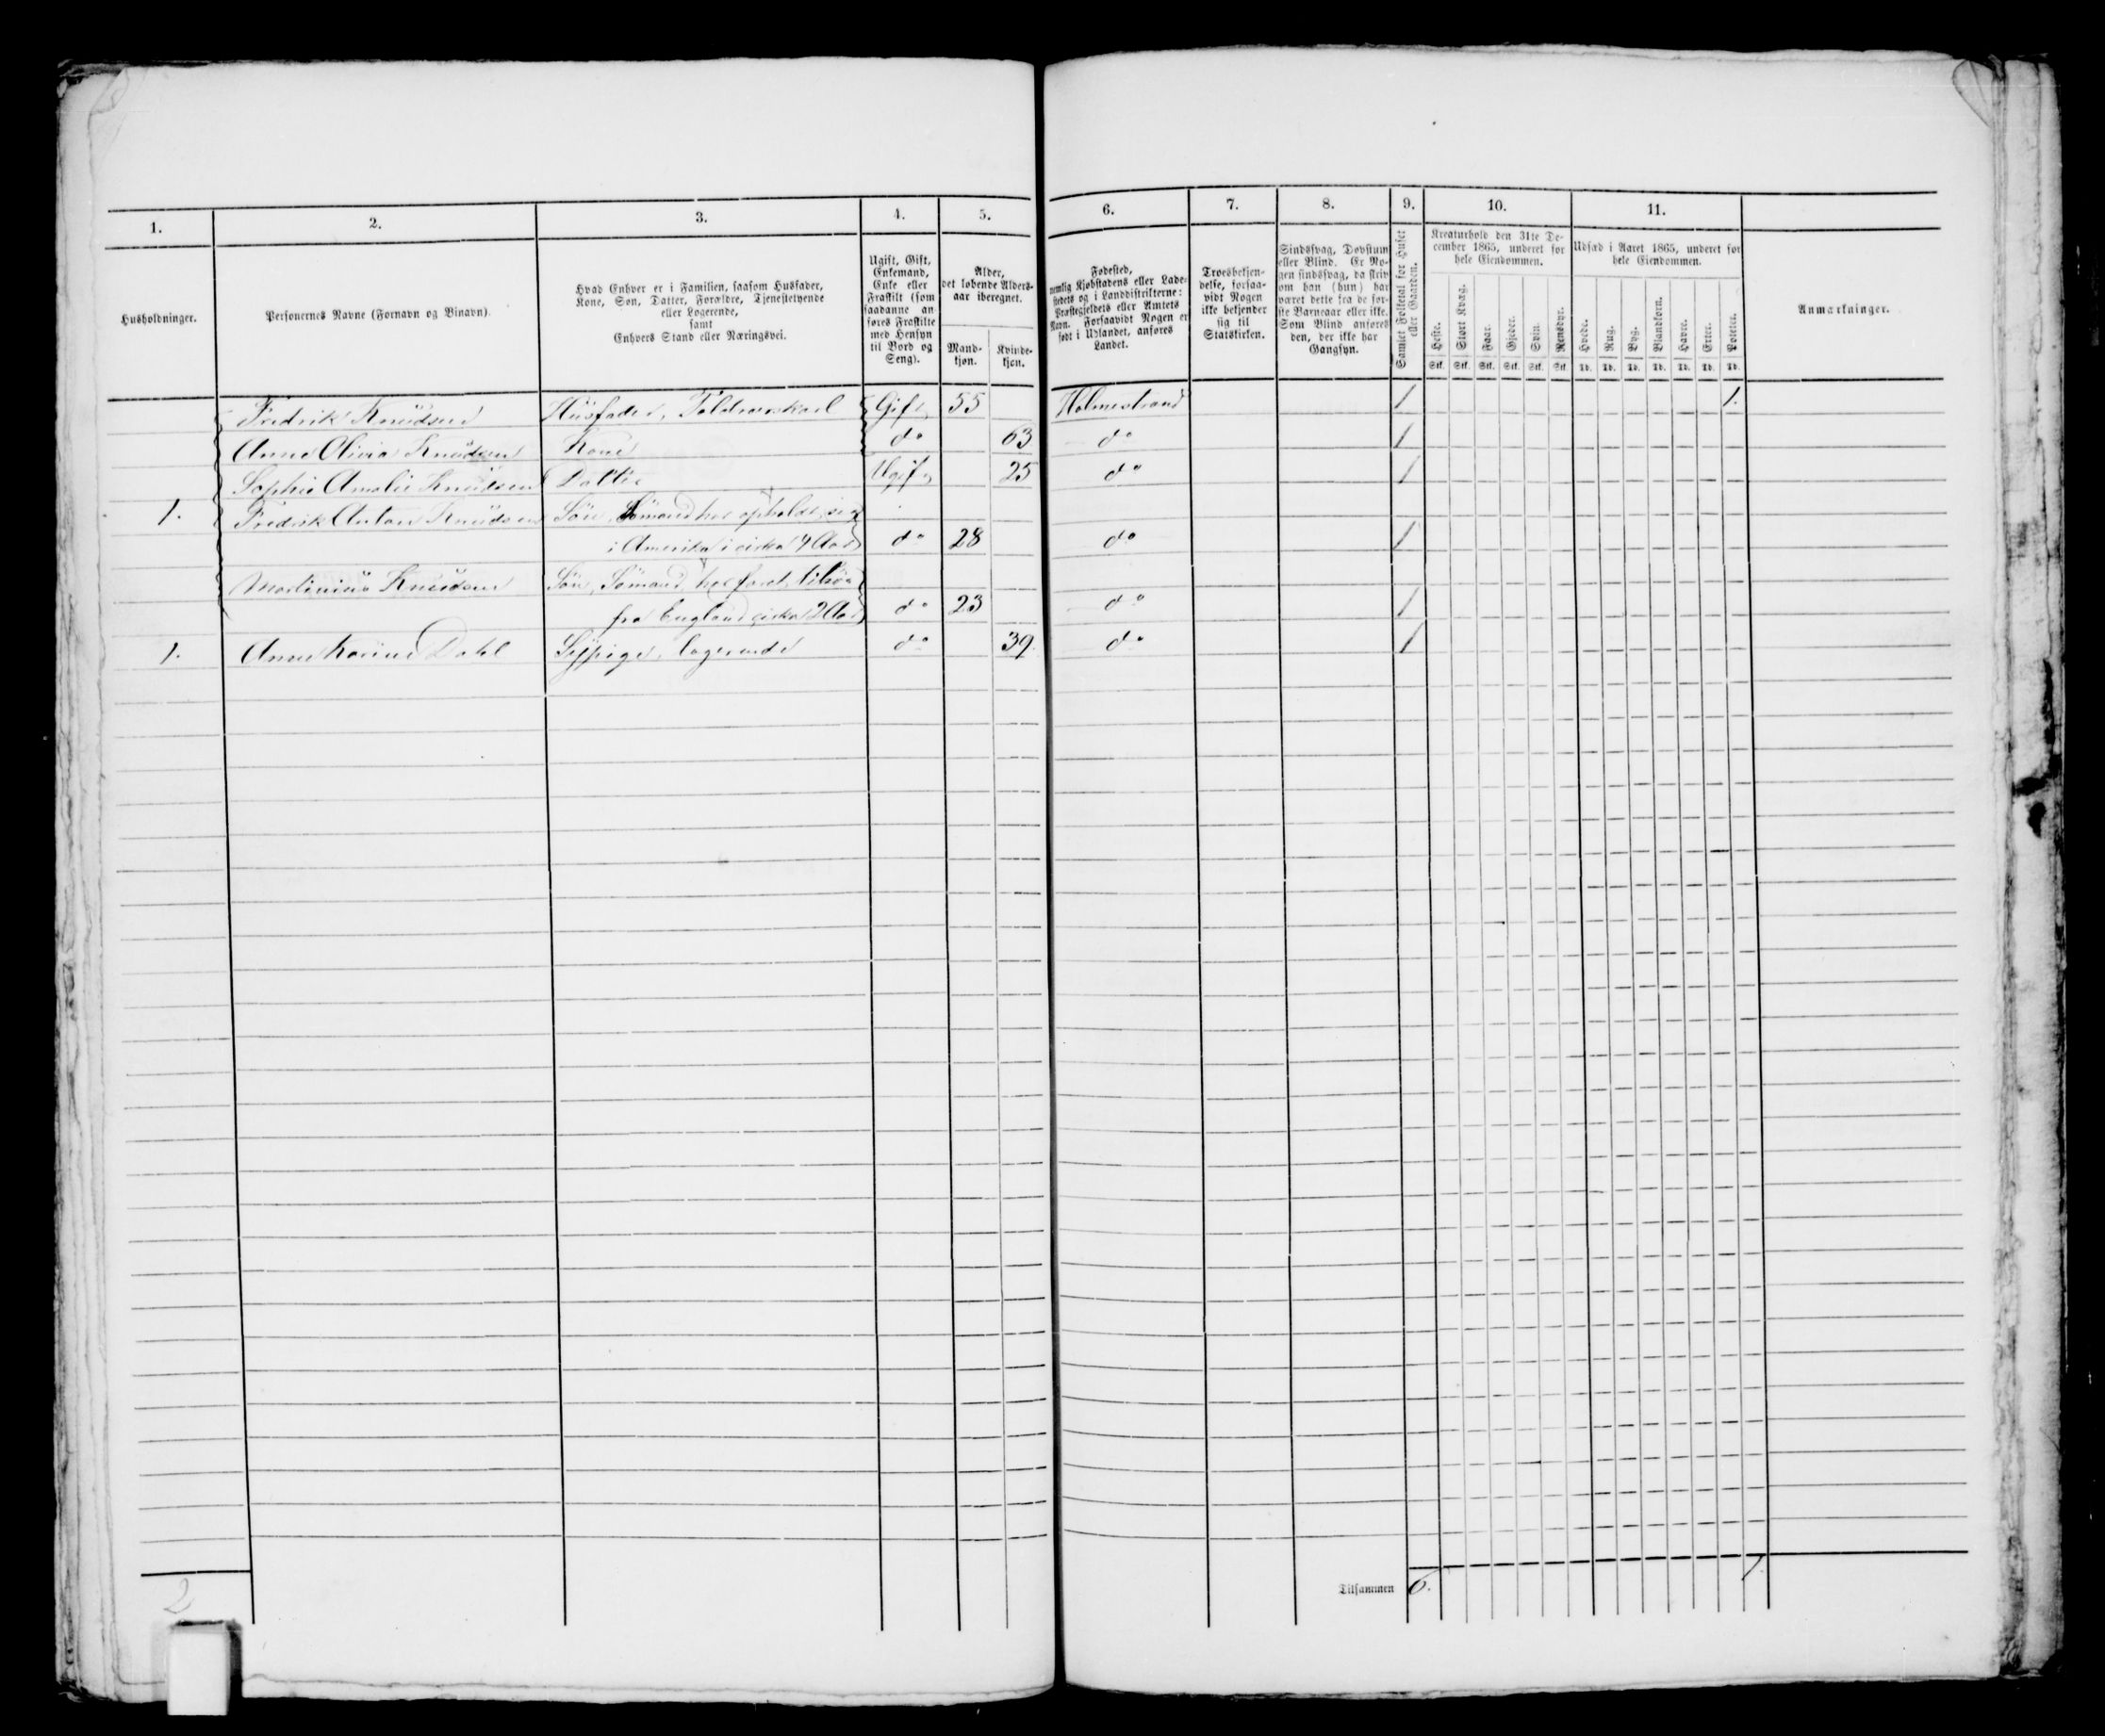 1. 2. 3. 4. 5. 6. 7. 8. 9. 10. 11.
Husholdninger.
Personernes Navne (Fornavn og Binavn).
Hvad Enhver er i Familien, saasom Husfader,
Kone, Søn, Datter, Forældre, Tjenestetyende
eller Logerende,
samt
Enhvers Stand eller Næringsvei.
Ugift, Gift,
Enkemand,
Enke eller
Fraskilt (som
saadanne an-
føres Fraskilte
med Hensyn
til Bord og
Seng).
Alder,
det løbende Alders-
aar iberegnet.
Mand-
kjøn.
Kvinde-
kjøn.
Fødested,
nemlig Kjøbstadens eller Lade-
stedets og i Landdistrikterne:
Præstegjeldets eller Amtets
Navn. Forsaavidt Nogen er
født i Udlandet, anføres
Landet.
Troesbekjen-
delse, forsaa-
vidt Nogen
ikke bekjender
sig til
Statskirken.
Sindssvag, Døvstum
eller Blind. Er No-
gen sindssvag, da skriv
om han (hun) har
været dette fra de før-
ste Barneaar eller ikke.
Som Blind anføres
den, der ikke har
Gangsyn.
Samlet Folketal for Huset
eller Gaarden.
Kreaturhold den 31te De-
cember 1865, underet for
hele Eiendommen.
Heste. Stort Kvæg. Faar. Gjeder. Svin. Rensdyr.
Stk. Stk. Stk. Stk. Stk. Stk.
Udsæd i Aaret 1865, underet for
hele Eiendommen.
Hvede. Rug. Byg. Blandkorn. Havre. Erter. Poteter.
Td. Td. Td. Td. Td. Td. Td.
Anmærkninger.
Fredrik Knudsen Husfader, Toldroerskarl Gift 55 Holmestrand 1 1.
Anne Olivia Knudsen Kone do 63 do 1
Sophie Amalie Knudsen Datter Ugift 25 do 1
1. Fredrik Anton Knudsen Søn, Sømand har opholdt sig
i Amerika i cirka 4 Aar do 28 do 1
Martinius Knudsen Søn, Sømand har faret tilsøs
fra England cirka 2 Aar do 23 do 1
1. Anne Karine Dahl Sypige, logerende do 39. do 1
Tilsammen 6. 1.
2